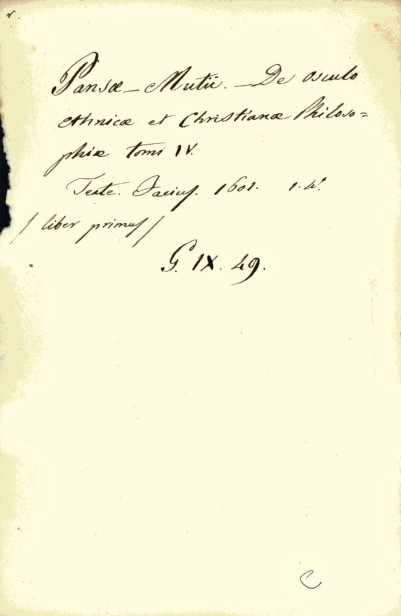 Pansæ – Mutii. – De osculo
ethnicæ et Christianæ Philoso=
phiæ tomi IV.
Teate. Facius. 1601. 1. 4.º
/ liber primus /
G. IX. 49.
C